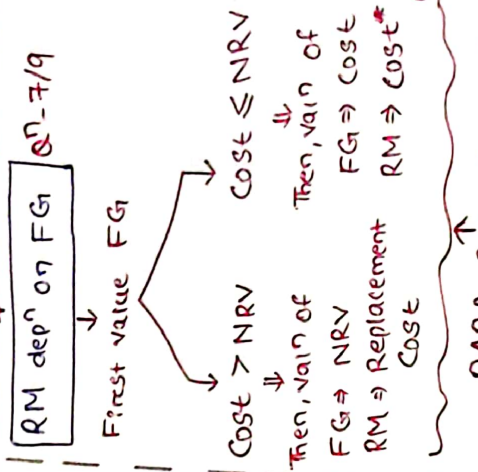 RM depⁿ on FG Qⁿ-7/9
First value FG
Cost > NRV
Then, valⁿ of
FG ⇒ NRV
RM ⇒ Replacement
Cost
Cost ≤ NRV
Then, valⁿ of
FG ⇒ Cost
RM ⇒ Cost*